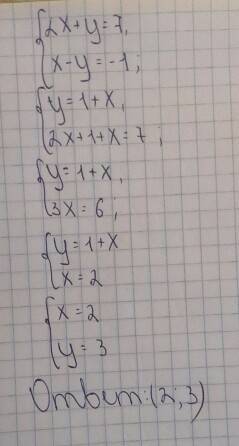 {2x+y=7,
x-y=-1;
{y=1+x,
2x+1+x=7;
{y=1+x,
3x=6;
{y=1+x
x=2
{x=2
y=3
Ответ:(2;3)